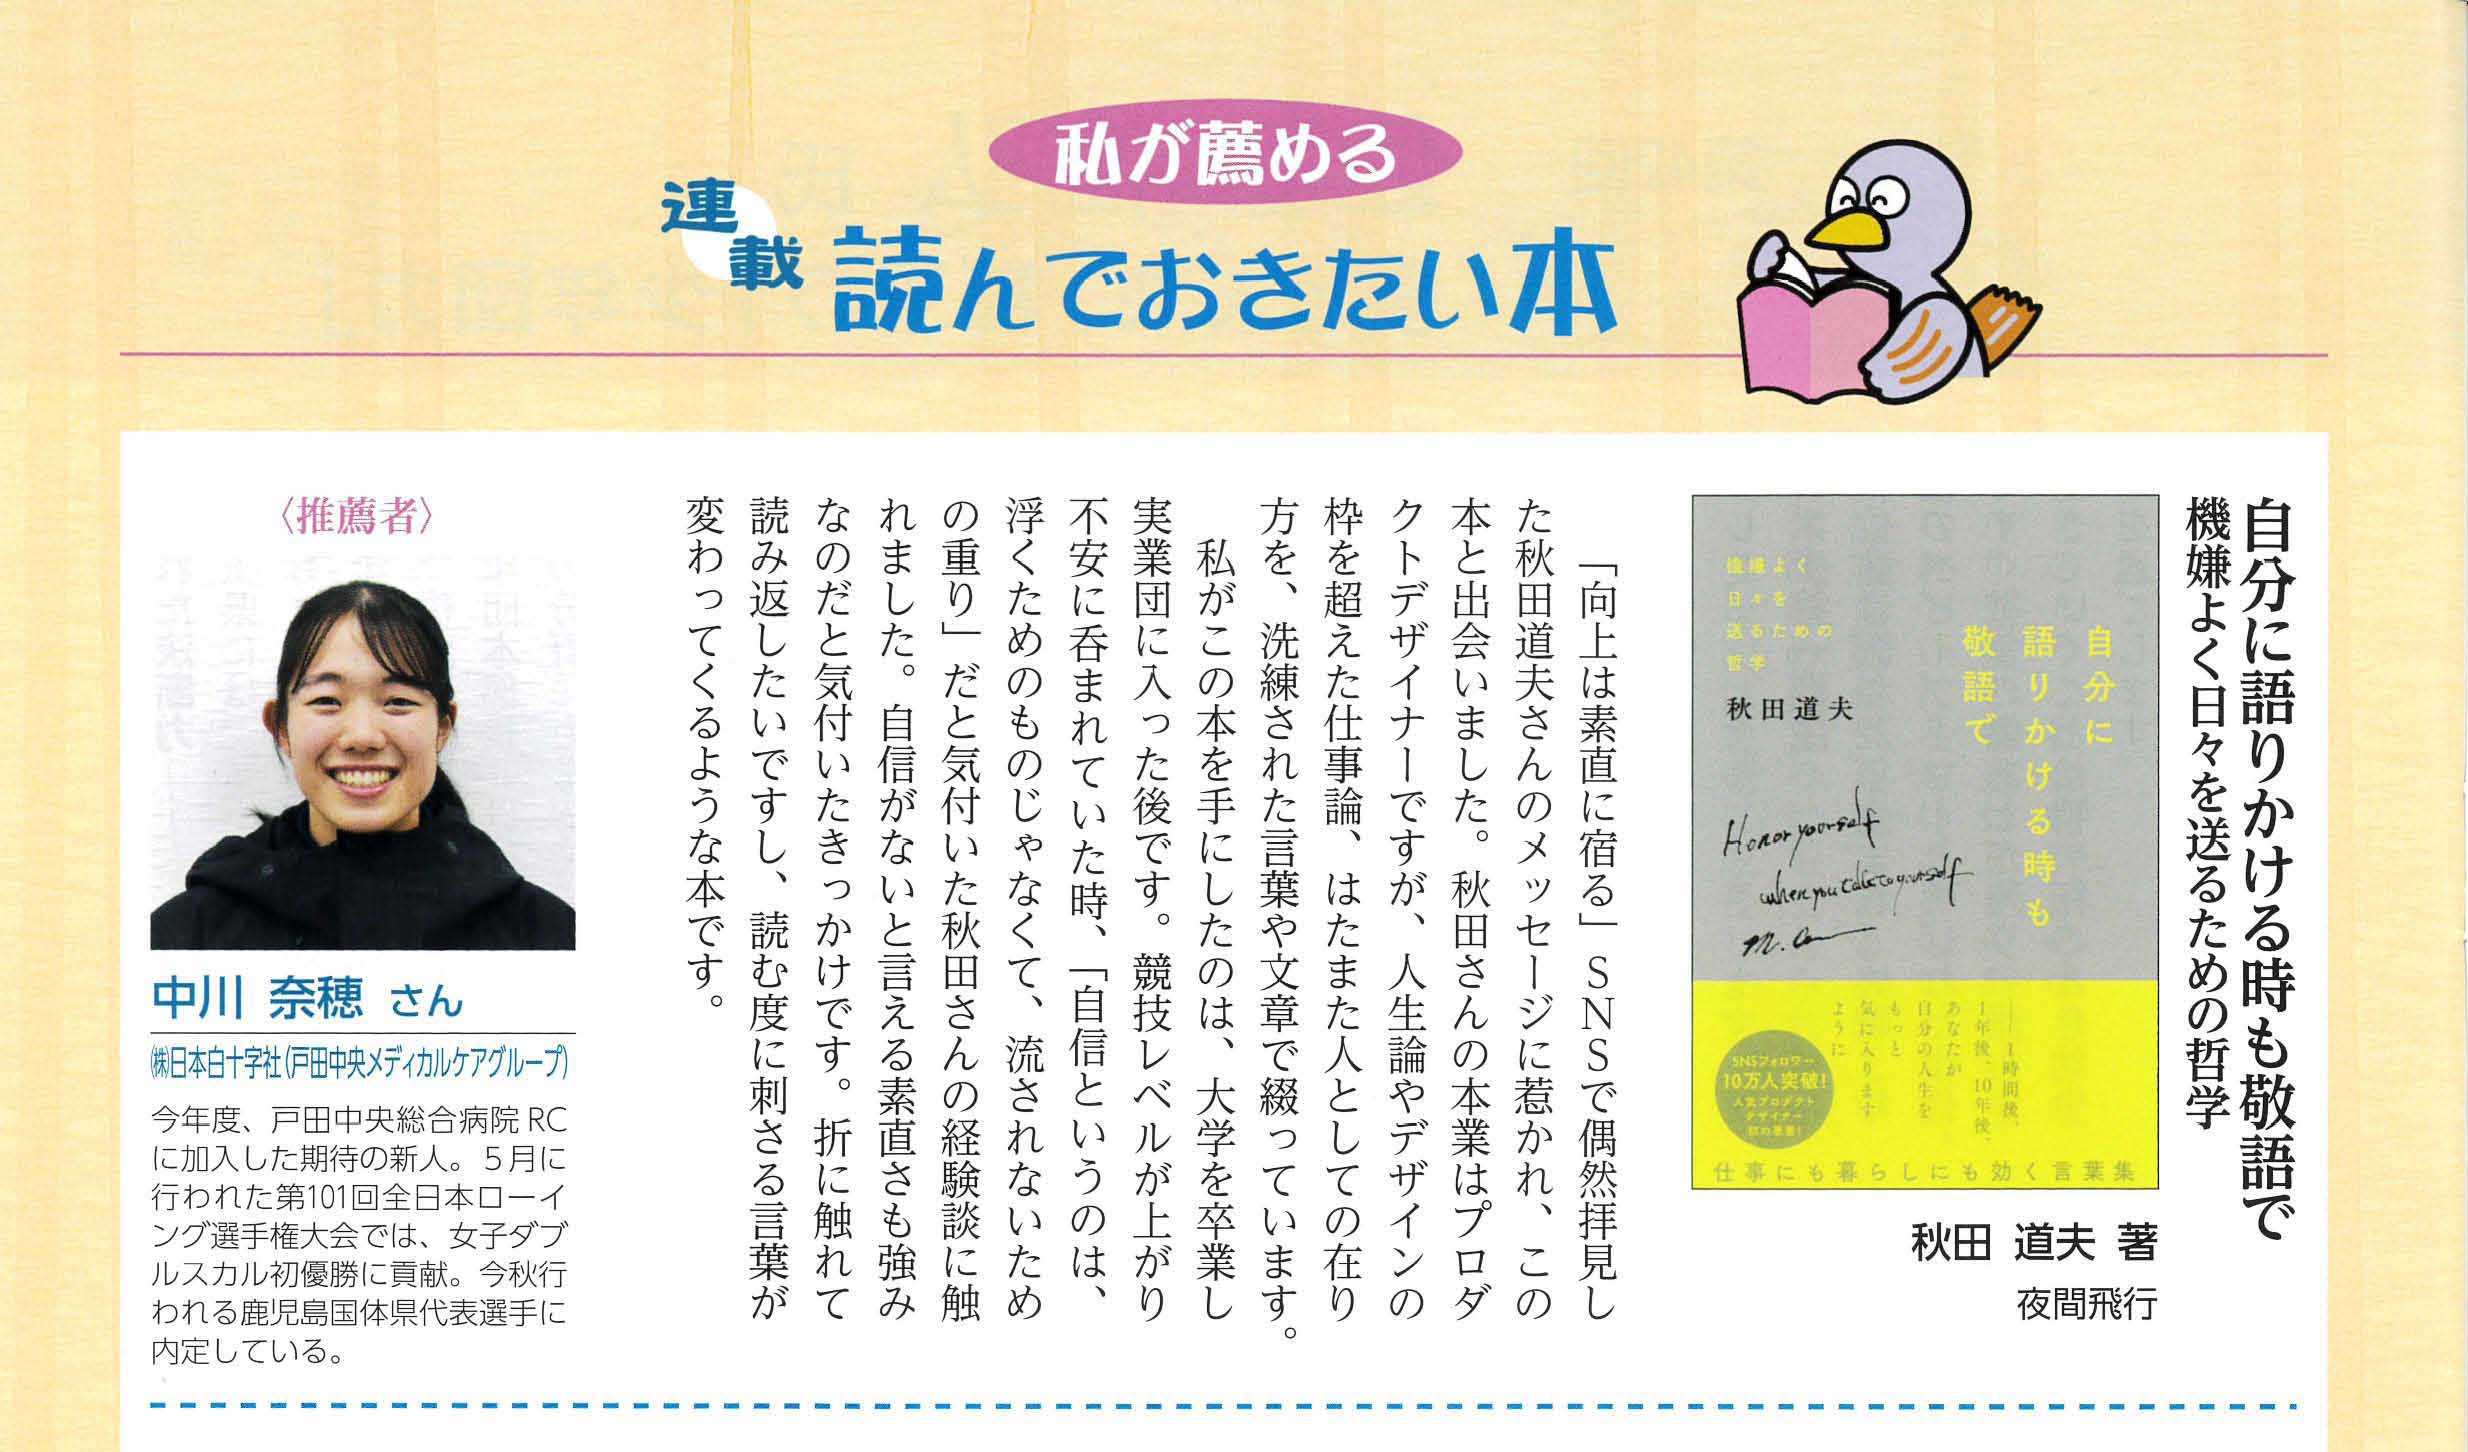 私が薦める
連載
読んでおきたい本
自分に語りかける時も敬語で
機嫌よく日々を送るための哲学
機嫌よく
日々を
送るための
哲学
秋田道夫
自分に
語りかける時も
敬語で
Honor yourself
when you talk to yourself
――1時間後、
1年後、10年後、
あなたが
自分の人生を
もっと
気に入ります
ように
SNSフォロワー
10万人突破!
人気プロダクト
デザイナー
初の著書!
仕事にも暮らしにも効く言葉集
秋田 道夫 著
夜間飛行
「向上は素直に宿る」SNSで偶然拝見し
た秋田道夫さんのメッセージに惹かれ、この
本と出会いました。秋田さんの本業はプロダ
クトデザイナーですが、人生論やデザインの
枠を超えた仕事論、はたまた人としての在り
方を、洗練された言葉や文章で綴っています。
私がこの本を手にしたのは、大学を卒業し
実業団に入った後です。競技レベルが上がり
不安に呑まれていた時、「自信というのは、
浮くためのものじゃなくて、流されないため
の重り」だと気付いた秋田さんの経験談に触
れました。自信がないと言える素直さも強み
なのだと気付いたきっかけです。折に触れて
読み返したいですし、読む度に刺さる言葉が
変わってくるような本です。
〈推薦者〉
中川 奈穂 さん
㈱日本白十字社(戸田中央メディカルケアグループ)
今年度、戸田中央総合病院RC
に加入した期待の新人。5月に
行われた第101回全日本ローイ
ング選手権大会では、女子ダブ
ルスカル初優勝に貢献。今秋行
われる鹿児島国体県代表選手に
内定している。